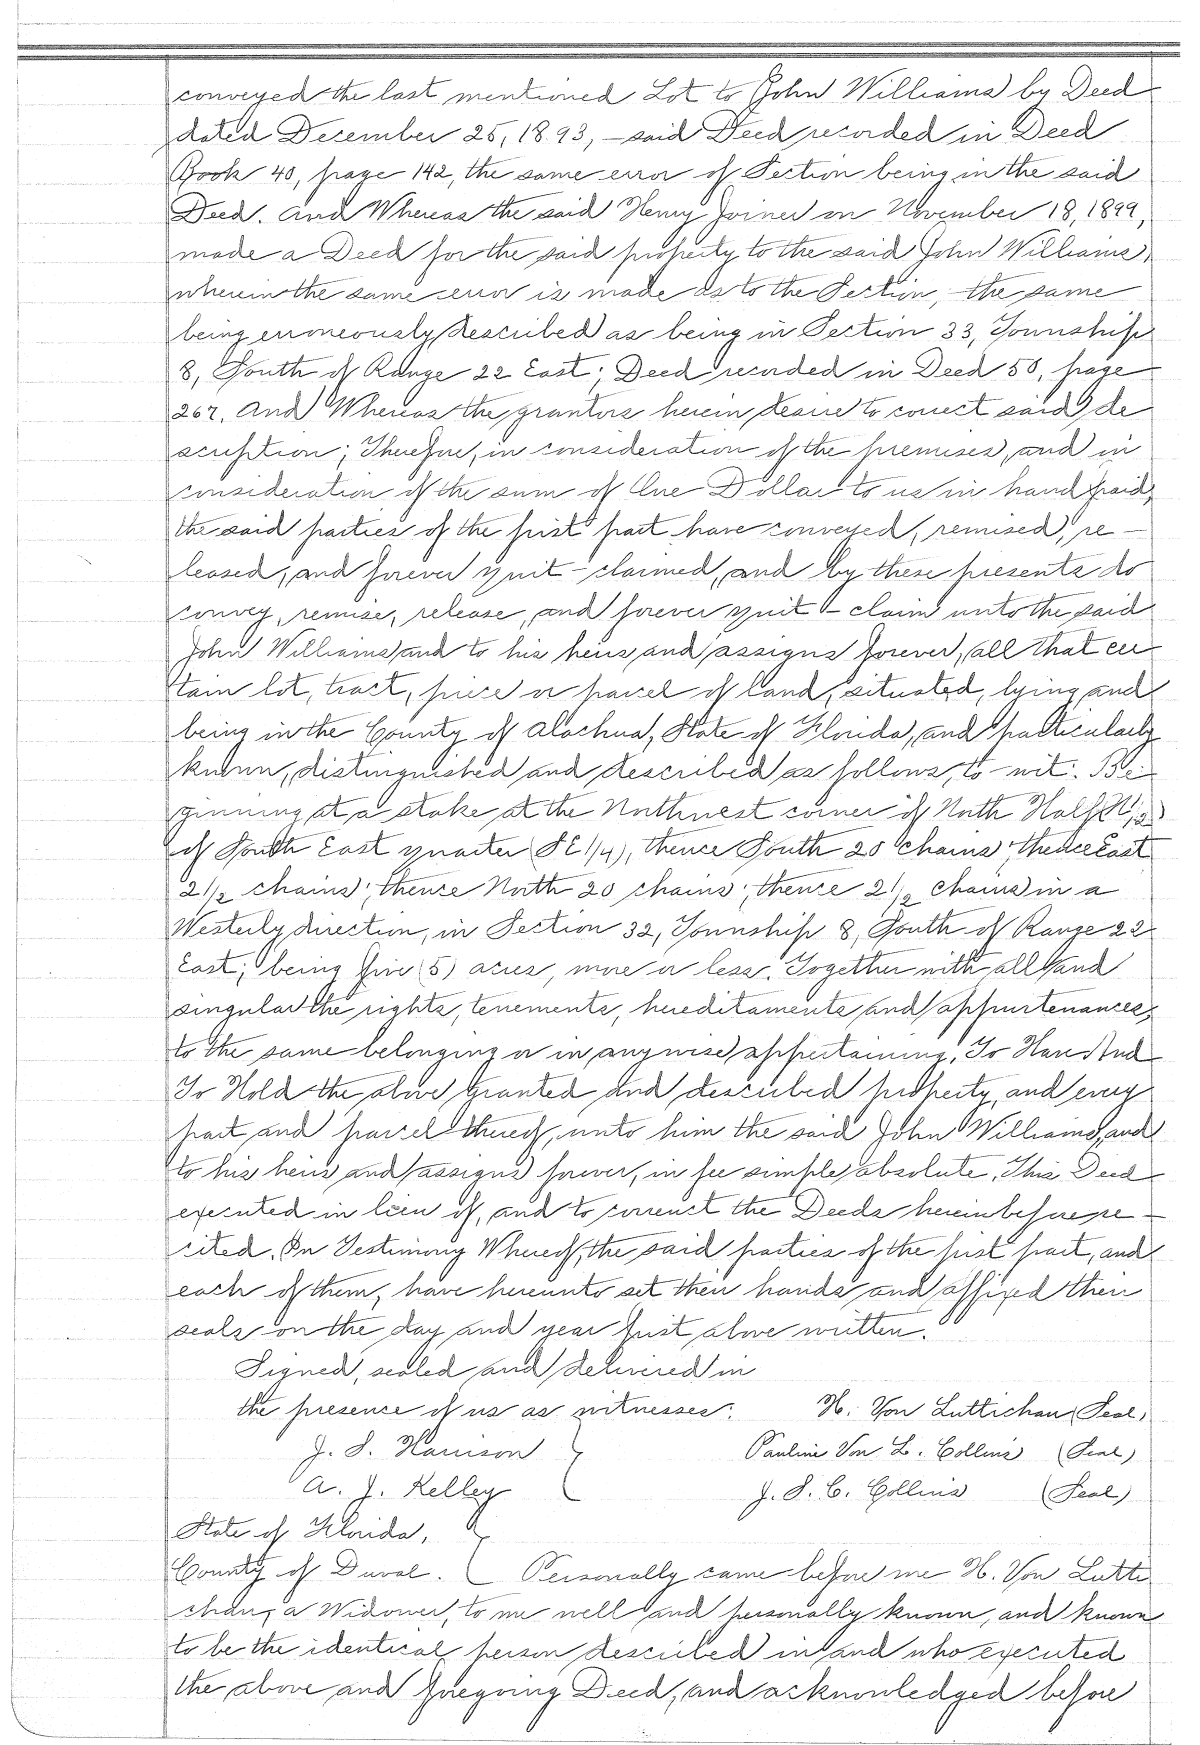 conveyed the last mentioned Lot to John Williams by Deed
dated December 25, 1893, - said Deed recorded in Deed
Book 40, page 142, the same error of Section being in the said
Deed. And Whereas the said Henry Joiner on November 18, 1899,
made a Deed for the said property to the said John Williams,
wherein the same error is made as to the Section, the same
being erroneously described as being in Section 33, Township
8, South of Range 22 East; Deed recorded in Deed 50, page
267. And Whereas the grantors herein desire to correct said de
scription; Therefore, in consideration of the premises, and in
consideration of the sum of One Dollar to us in hand paid,
the said parties of the first part have conveyed, remised, re-
leased, and forever quit-claimed, and by these presents do
convey, remise, release, and forever quit-claim unto the said
John Williams and to his heirs and assigns forever, all that cer
tain lot, tract, piece or parcel of land, situated, lying and
being in the County of Alachua, State of Florida, and particularly
known, distinguished and described as follows, to-wit: Be-
ginning at a stake at the Northwest corner of North Half (N 1/2)
of South East quarter (SE 1/4), thence South 20 chains; thence East
2 1/2 chains; thence North 20 chains; thence 2 1/2 chains in a
Westerly direction, in Section 32, Township 8, South of Range 22
East; being five (5) acres, more or less. Together with all and
singular the rights, tenements, hereditaments and appurtenances,
to the same belonging or in anywise appertaining. To Have And
To Hold the above granted and described property, and every
part and parcel thereof, unto him the said John Williams, and
to his heirs and assigns forever, in fee simple absolute. This Deed
executed in lieu of, and to correct the Deeds hereinbefore re-
cited. In Testimony Whereof, the said parties of the first part, and
each of them, have hereunto set their hands and affixed their
seals on the day and year first above written.
Signed, sealed and delivered in
the presence of us as witnesses: H. Von Luttichau (Seal)
J. S. Harrison Pauline Von L. Collins (Seal)
A. J. Kelley J. S. C. Collins (Seal)
State of Florida,
County of Duval. Personally came before me H. Von Lutti
chau, a Widower, to me well and personally known, and known
to be the identical person described in and who executed
the above and foregoing Deed, and acknowledged before